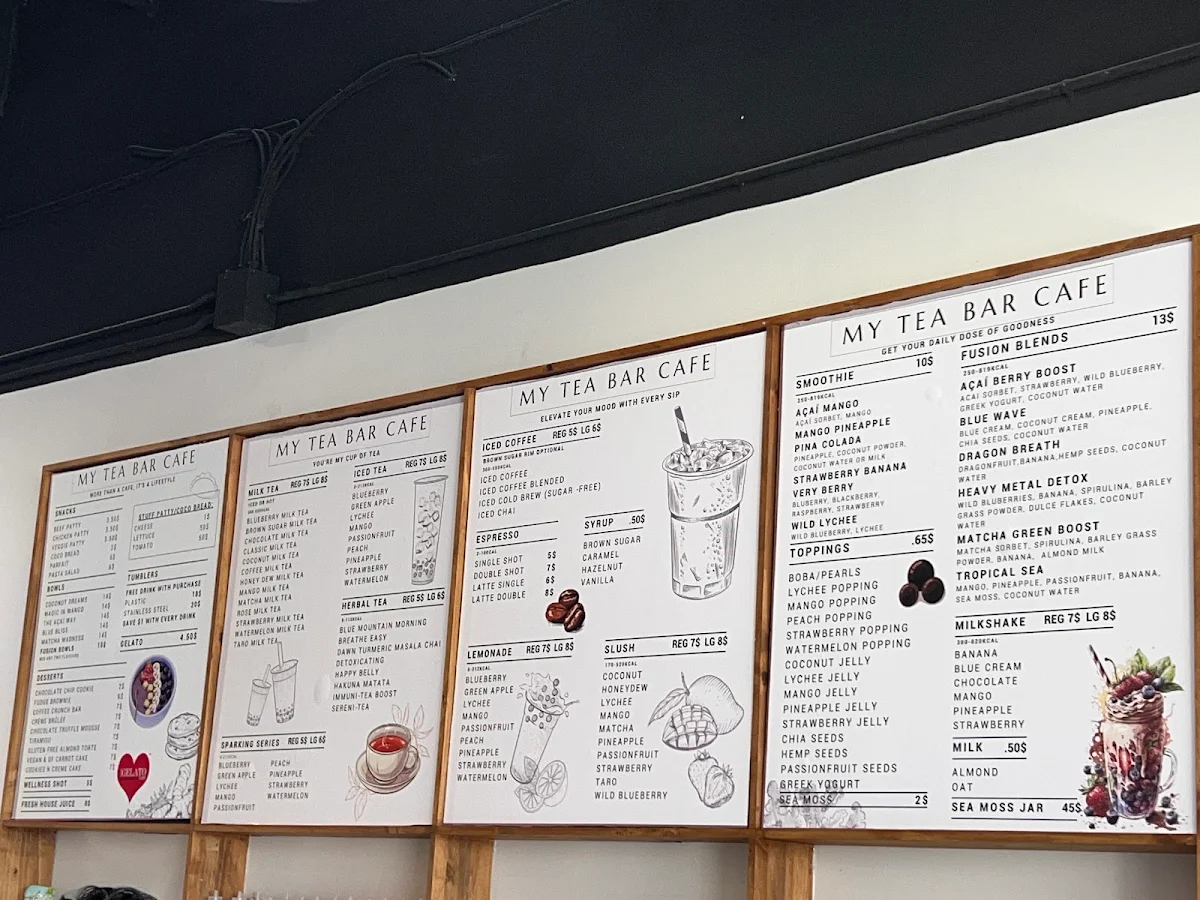 MY TEA BAR CAFE
MORE THAN A CAFE, IT'S A LIFESTYLE
SNACKS
BEEF PATTY 3.50$
CHICKEN PATTY 3.50$
VEGGIE PATTY 3.50$
COCO BREAD
PARFAIT
PASTA SALAD
STUFF PATTY/COCO BREAD:
CHEESE
LETTUCE 50$
TOMATO 50$
BOWLS
COCONUT DREAMS 14$
MAGIC IN MANGO 14$
THE AÇAÍ WAY 14$
BLUE BLISS 14$
MATCHA MADNESS 14$
FUSION BOWLS
TUMBLERS
FREE DRINK WITH PURCHASE
PLASTIC
STAINLESS STEEL 20$
SAVE $1 WITH EVERY DRINK
GELATO 4.50$
DESSERTS
CHOCOLATE CHIP COOKIE
FUDGE BROWNIE
COFFEE CRUNCH BAR
CRÈME BRÛLÉE
CHOCOLATE TRUFFLE MOUSSE
TIRAMISU
GLUTEN FREE ALMOND TORTE
VEGAN & GF CARROT CAKE
COOKIES N CREME CAKE
GELATO
WELLNESS SHOT
FRESH HOUSE JUICE 8$
MY TEA BAR CAFE
YOU'RE MY CUP OF TEA
MILK TEA REG 7$ LG 8$
ICED OR HOT
BLUEBERRY MILK TEA
BROWN SUGAR MILK TEA
CHOCOLATE MILK TEA
CLASSIC MILK TEA
COCONUT MILK TEA
COFFEE MILK TEA
HONEY DEW MILK TEA
MANGO MILK TEA
MATCHA MILK TEA
ROSE MILK TEA
STRAWBERRY MILK TEA
WATERMELON MILK TEA
TARO MILK TEA
ICED TEA REG 7$ LG 8$
BLUEBERRY
GREEN APPLE
LYCHEE
MANGO
PASSIONFRUIT
PEACH
PINEAPPLE
STRAWBERRY
WATERMELON
HERBAL TEA REG 5$ LG 6$
BLUE MOUNTAIN MORNING
BREATHE EASY
DAWN TURMERIC MASALA CHAI
DETOXICATING
HAPPY BELLY
HAKUNA MATATA
IMMUNI-TEA BOOST
SERENI-TEA
SPARKING SERIES REG 5$ LG 6$
BLUEBERRY
GREEN APPLE
LYCHEE
MANGO
PASSIONFRUIT
PEACH
PINEAPPLE
STRAWBERRY
WATERMELON
MY TEA BAR CAFE
ELEVATE YOUR MOOD WITH EVERY SIP
ICED COFFEE REG 5$ LG 6$
BROWN SUGAR RIM OPTIONAL
ICED COFFEE
ICED COFFEE BLENDED
ICED COLD BREW (SUGAR -FREE)
ICED CHAI
ESPRESSO
SINGLE SHOT 5$
DOUBLE SHOT 7$
LATTE SINGLE 6$
LATTE DOUBLE 8$
SYRUP .50$
BROWN SUGAR
CARAMEL
HAZELNUT
VANILLA
LEMONADE REG 7$ LG 8$
BLUEBERRY
GREEN APPLE
LYCHEE
MANGO
PASSIONFRUIT
PEACH
PINEAPPLE
STRAWBERRY
WATERMELON
SLUSH REG 7$ LG 8$
170-509KCAL
COCONUT
HONEYDEW
LYCHEE
MANGO
MATCHA
PINEAPPLE
PASSIONFRUIT
STRAWBERRY
TARO
WILD BLUEBERRY
MY TEA BAR CAFE
GET YOUR DAILY DOSE OF GOODNESS
SMOOTHIE 10$
250-819KCAL
AÇAÍ MANGO
AÇAÍ SORBET, MANGO
MANGO PINEAPPLE
PINA COLADA
PINEAPPLE, COCONUT POWDER,
COCONUT WATER OR MILK
STRAWBERRY BANANA
VERY BERRY
BLUBERRY, BLACKBERRY,
RASPBERRY, STRAWBERRY
WILD LYCHEE
WILD BLUEBERRY, LYCHEE
TOPPINGS .65$
BOBA/PEARLS
LYCHEE POPPING
MANGO POPPING
PEACH POPPING
STRAWBERRY POPPING
WATERMELON POPPING
COCONUT JELLY
LYCHEE JELLY
MANGO JELLY
PINEAPPLE JELLY
STRAWBERRY JELLY
CHIA SEEDS
HEMP SEEDS
PASSIONFRUIT SEEDS
GREEK YOGURT
SEA MOSS 2$
FUSION BLENDS 13$
250-819KCAL
AÇAÍ BERRY BOOST
ACAI SORBET, STRAWBERRY, WILD BLUEBERRY,
GREEK YOGURT, COCONUT WATER
BLUE WAVE
BLUE CREAM, COCONUT CREAM, PINEAPPLE,
CHIA SEEDS, COCONUT WATER
DRAGON BREATH
DRAGONFRUIT,BANANA,HEMP SEEDS, COCONUT
WATER
HEAVY METAL DETOX
WILD BLUBERRIES, BANANA, SPIRULINA, BARLEY
GRASS POWDER, DULCE FLAKES, COCONUT
WATER
MATCHA GREEN BOOST
MATCHA SORBET, SPIRULINA, BARLEY GRASS
POWDER, BANANA, ALMOND MILK
TROPICAL SEA
MANGO, PINEAPPLE, PASSIONFRUIT, BANANA,
SEA MOSS, COCONUT WATER
MILKSHAKE REG 7$ LG 8$
BANANA
BLUE CREAM
CHOCOLATE
MANGO
PINEAPPLE
STRAWBERRY
MILK .50$
ALMOND
OAT
SEA MOSS JAR 45$